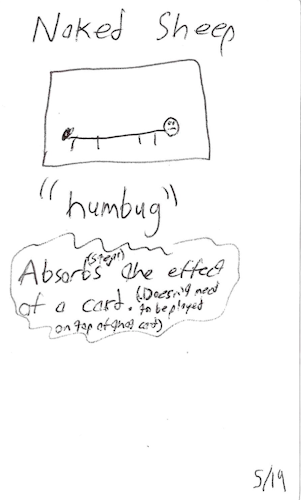 Naked Sheep
"humbug"
(steals)
Absorbs the effect
of a card. (Doesn't need
to be played
on top of that card)
5/19